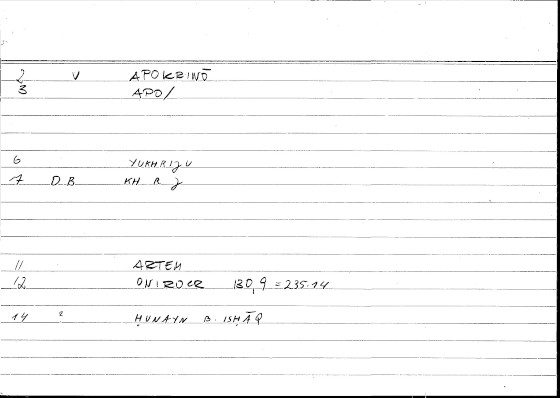 2 V APOKRINŌ
3 APO/
6 YUKHRIJU
7 DB KH R J
11 ARTEM
12 ONIROCR 130,9 = 235.14
14 " ḤUNAYN B. ISḤĀQ